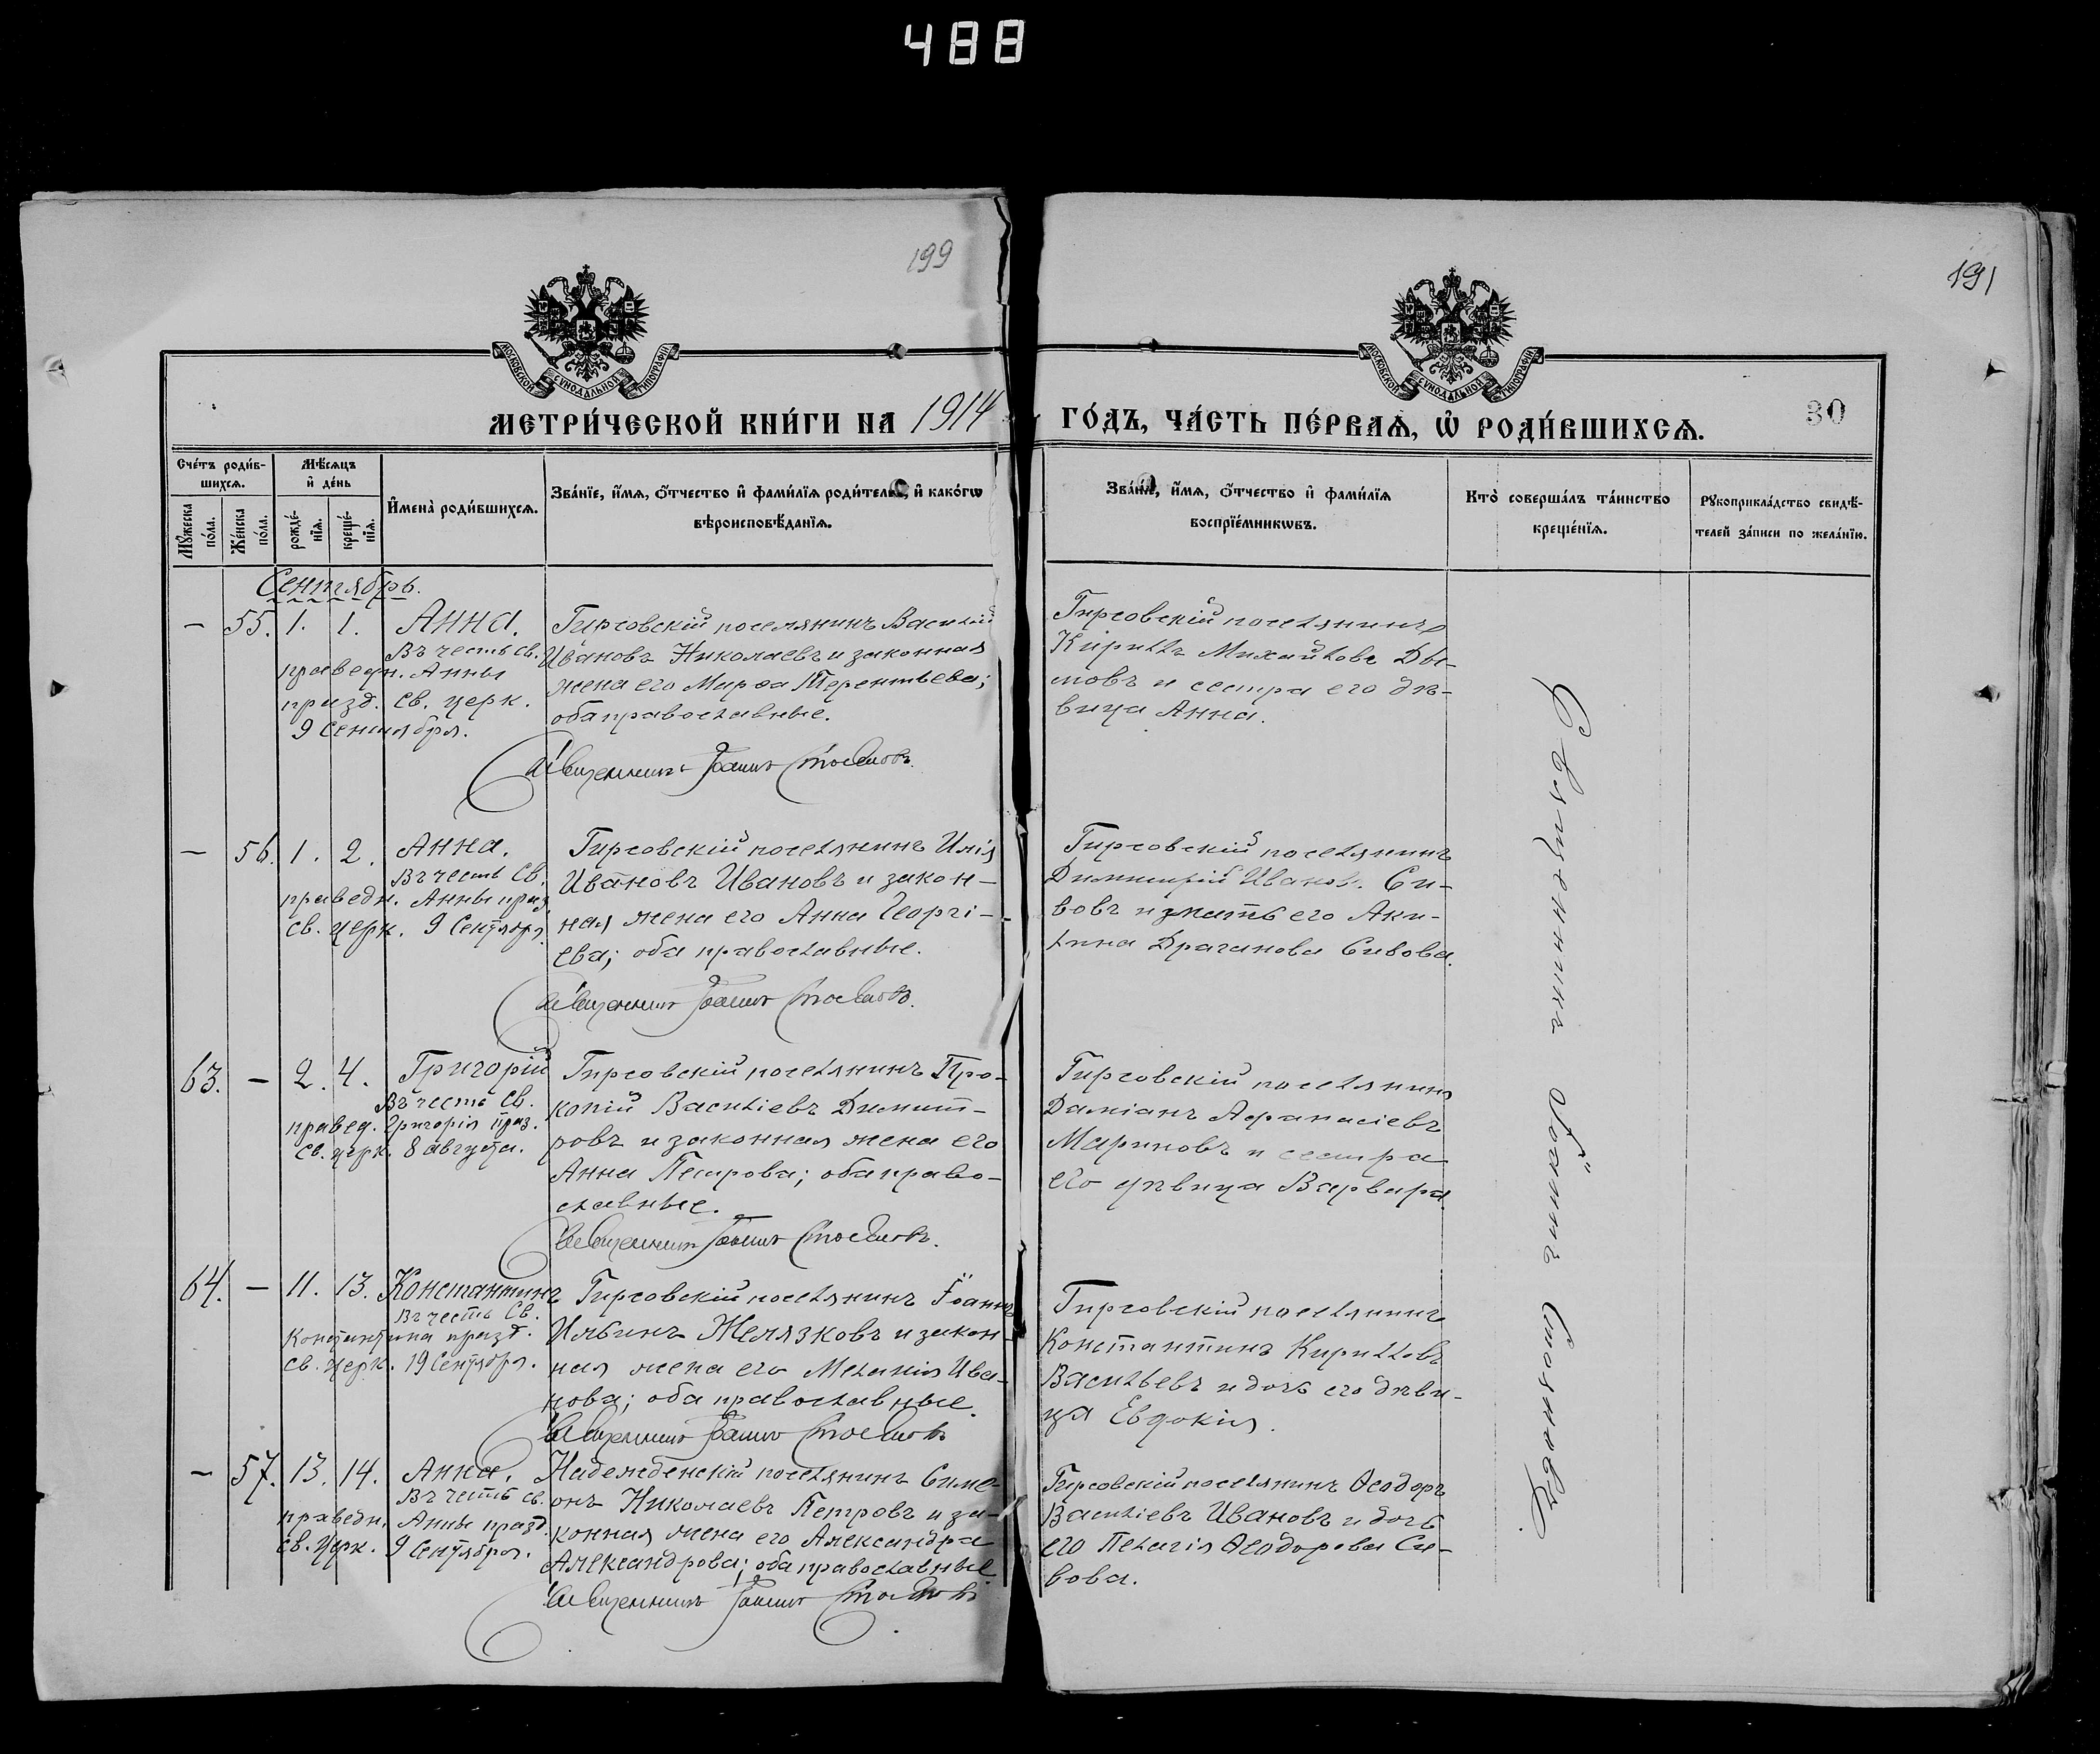 488
199
191
МОСКОВСКОЙ СѴНОДАЛЬНОЙ ТИПОГРАФІИ
МОСКОВСКОЙ СѴНОДАЛЬНОЙ ТИПОГРАФІИ
МЕТРИ́ЧЕСКОЙ КНИ́ГИ НА 1914
ГО́ДЪ, ЧА́СТЬ ПЕ́РВАѦ, Ѡ҆ РОДИ́ВШИХСѦ.
30
Сче́тъ роди́в-
шихсѧ.
Мꙋ́жеска по́ла.
Же́нска по́ла.
Мѣ́сѧцъ
и҆ де́нь
рожде́-
нїѧ.
креще́-
нїѧ.
И҆мена̀ роди́вшихсѧ.
Зва́нїе, и҆́мѧ, ѻ҆́тчество и҆ фами́лїѧ роди́телей, и҆ како́гѡ
вѣроисповѣ́данїѧ.
Зва́нїе, и҆́мѧ, ѻ҆́тчество и҆ фами́лїѧ
воспрїе́мникѡвъ.
Кто̀ соверша́лъ та́инство
креще́нїѧ.
Рꙋкоприкла́дство свидѣ́-
телей за́писи по жела́нїю.
Сентябрь.
— 55. 1. 1. Анна.
Въ честь св.
праведн. Анны
празд. св. церк.
9 Сентября.
Гирсовскій поселянинъ Василій
Ивановъ Николаевъ и законная
жена его Марѳа Терентьева;
оба православные.
Священникъ Іоаннъ Стояновъ.
Гирсовскій поселянинъ
Кириллъ Михайловъ Ды-
мовъ и сестра его дѣ-
вица Анна.
— 56. 1. 2. Анна.
Въ честь Св.
праведн. Анны праз.
св. церк. 9 Сентября.
Гирсовскій поселянинъ Илія
Ивановъ Ивановъ и закон-
ная жена его Анна Георгі-
ева; оба православные.
Священникъ Іоаннъ Стояновъ.
Гирсовскій поселянинъ
Димитрій Иванов. Си-
вовъ и мать его Аки-
лина Драганова Сивова.
63. — 2. 4. Григорій
Въ честь св.
правед. Григорія праз.
св. церк. 8 августа.
Гирсовскій поселянинъ Про-
копій Василіевъ Димит-
ровъ и законная жена его
Анна Петрова; оба право-
славные.
Священникъ Іоаннъ Стояновъ.
Гирсовскій поселянинъ
Даміанъ Аѳанасіевъ
Мариновъ и сестра
его дѣвица Варвара.
64. — 11. 13. Константинъ
Въ честь Св.
Константина празд.
св. церк. 19 Сентября.
Гирсовскій поселянинъ Іоаннъ
Ильинъ Желязковъ и закон-
ная жена его Меланія Ива-
нова; оба православные.
Священникъ Іоаннъ Стояновъ
Гирсовскій поселянинъ
Константинъ Кирилловъ
Васильевъ и дочь его дѣви-
ца Евдокія.
— 57. 13. 14. Анна.
Въ честь св.
праведн. Анны празд.
св. церк. 9 Сентября.
Надежденскій поселянинъ Симе-
онъ Николаевъ Петровъ и за-
конная жена его Александра
Александрова; оба православные.
Священникъ Іоаннъ Стояновъ
Гирсовскій поселянинъ Ѳеодоръ
Василіевъ Ивановъ и дочь
его Пелагія Ѳеодорова Си-
вова.
Священникъ Іоаннъ Стояновъ.